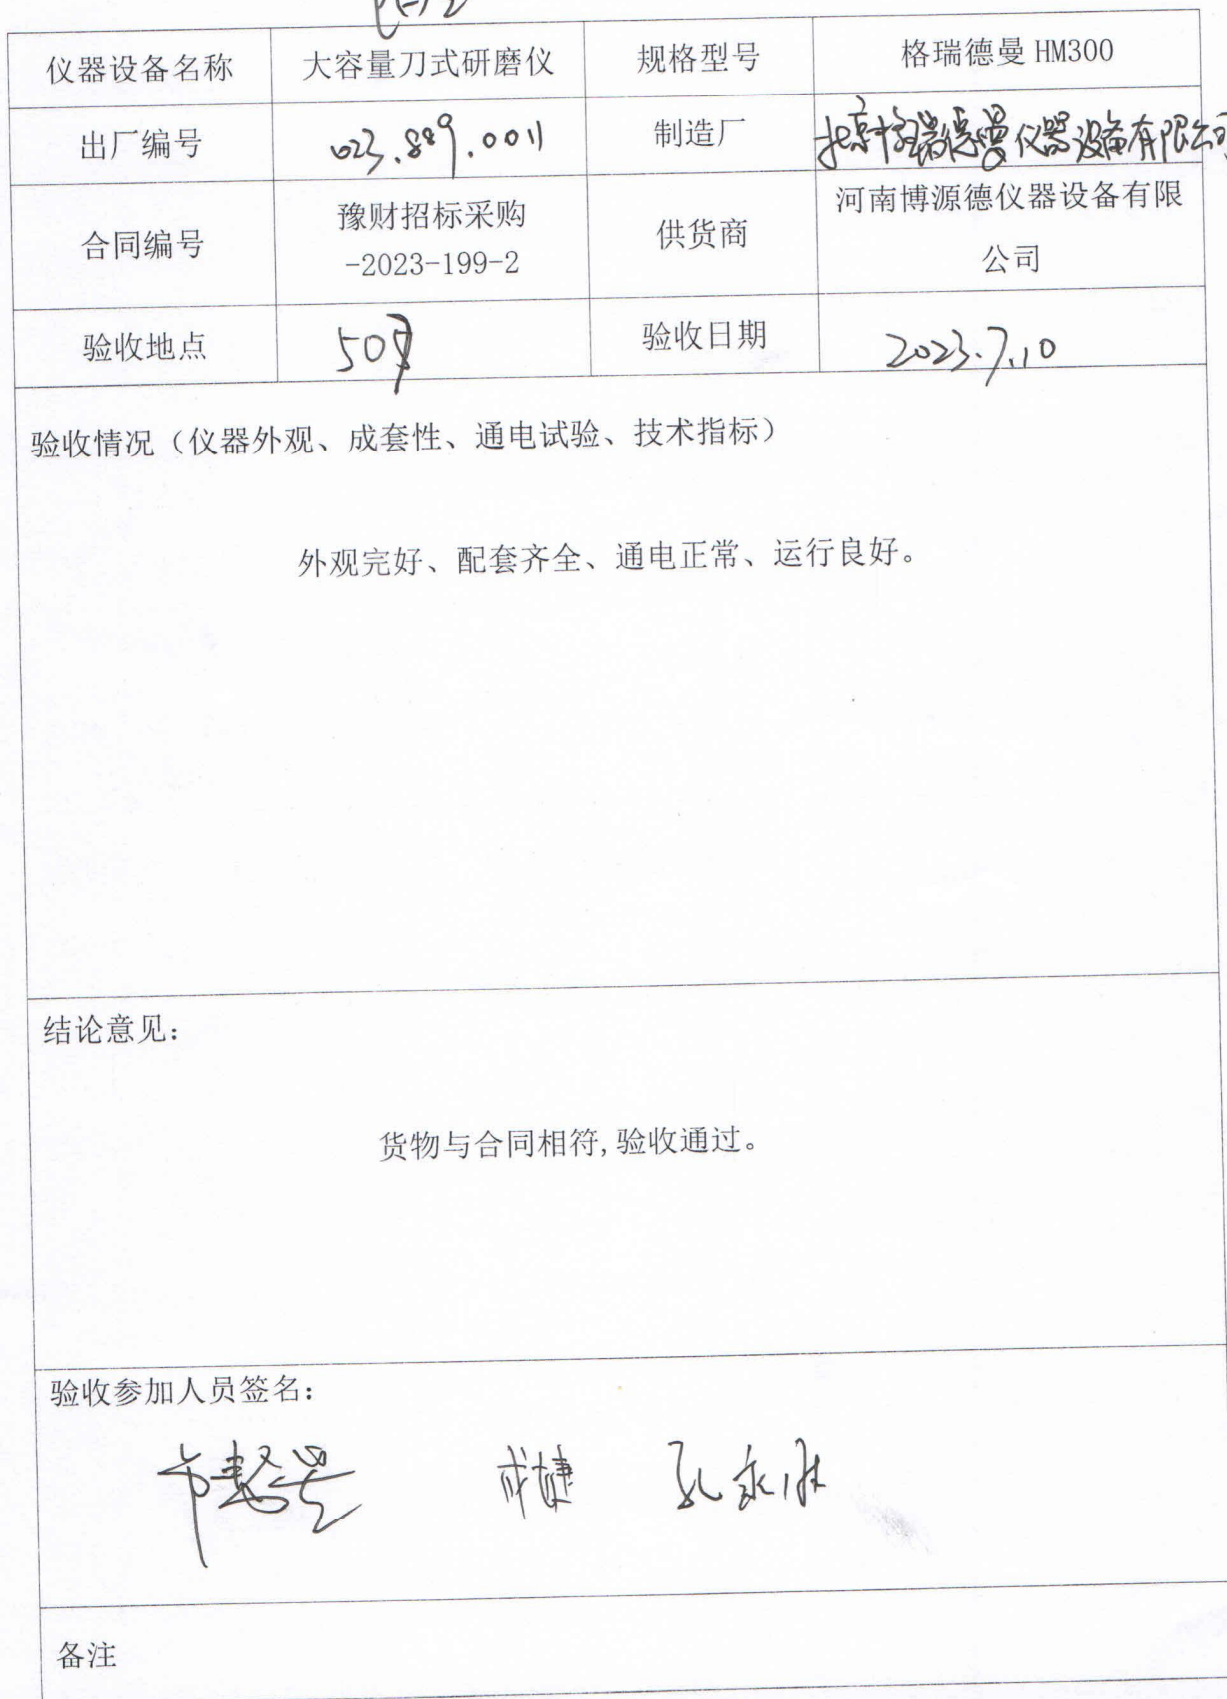 仪器设备名称 大容量刀式研磨仪 规格型号 格瑞德曼 HM300
出厂编号 023.889.0011 制造厂 北京格瑞德曼仪器设备有限公司
合同编号 豫财招标采购
-2023-199-2 供货商 河南博源德仪器设备有限
公司
验收地点 507 验收日期 2023.7.10
验收情况（仪器外观、成套性、通电试验、技术指标）
外观完好、配套齐全、通电正常、运行良好。
结论意见：
货物与合同相符,验收通过。
验收参加人员签名：
备注